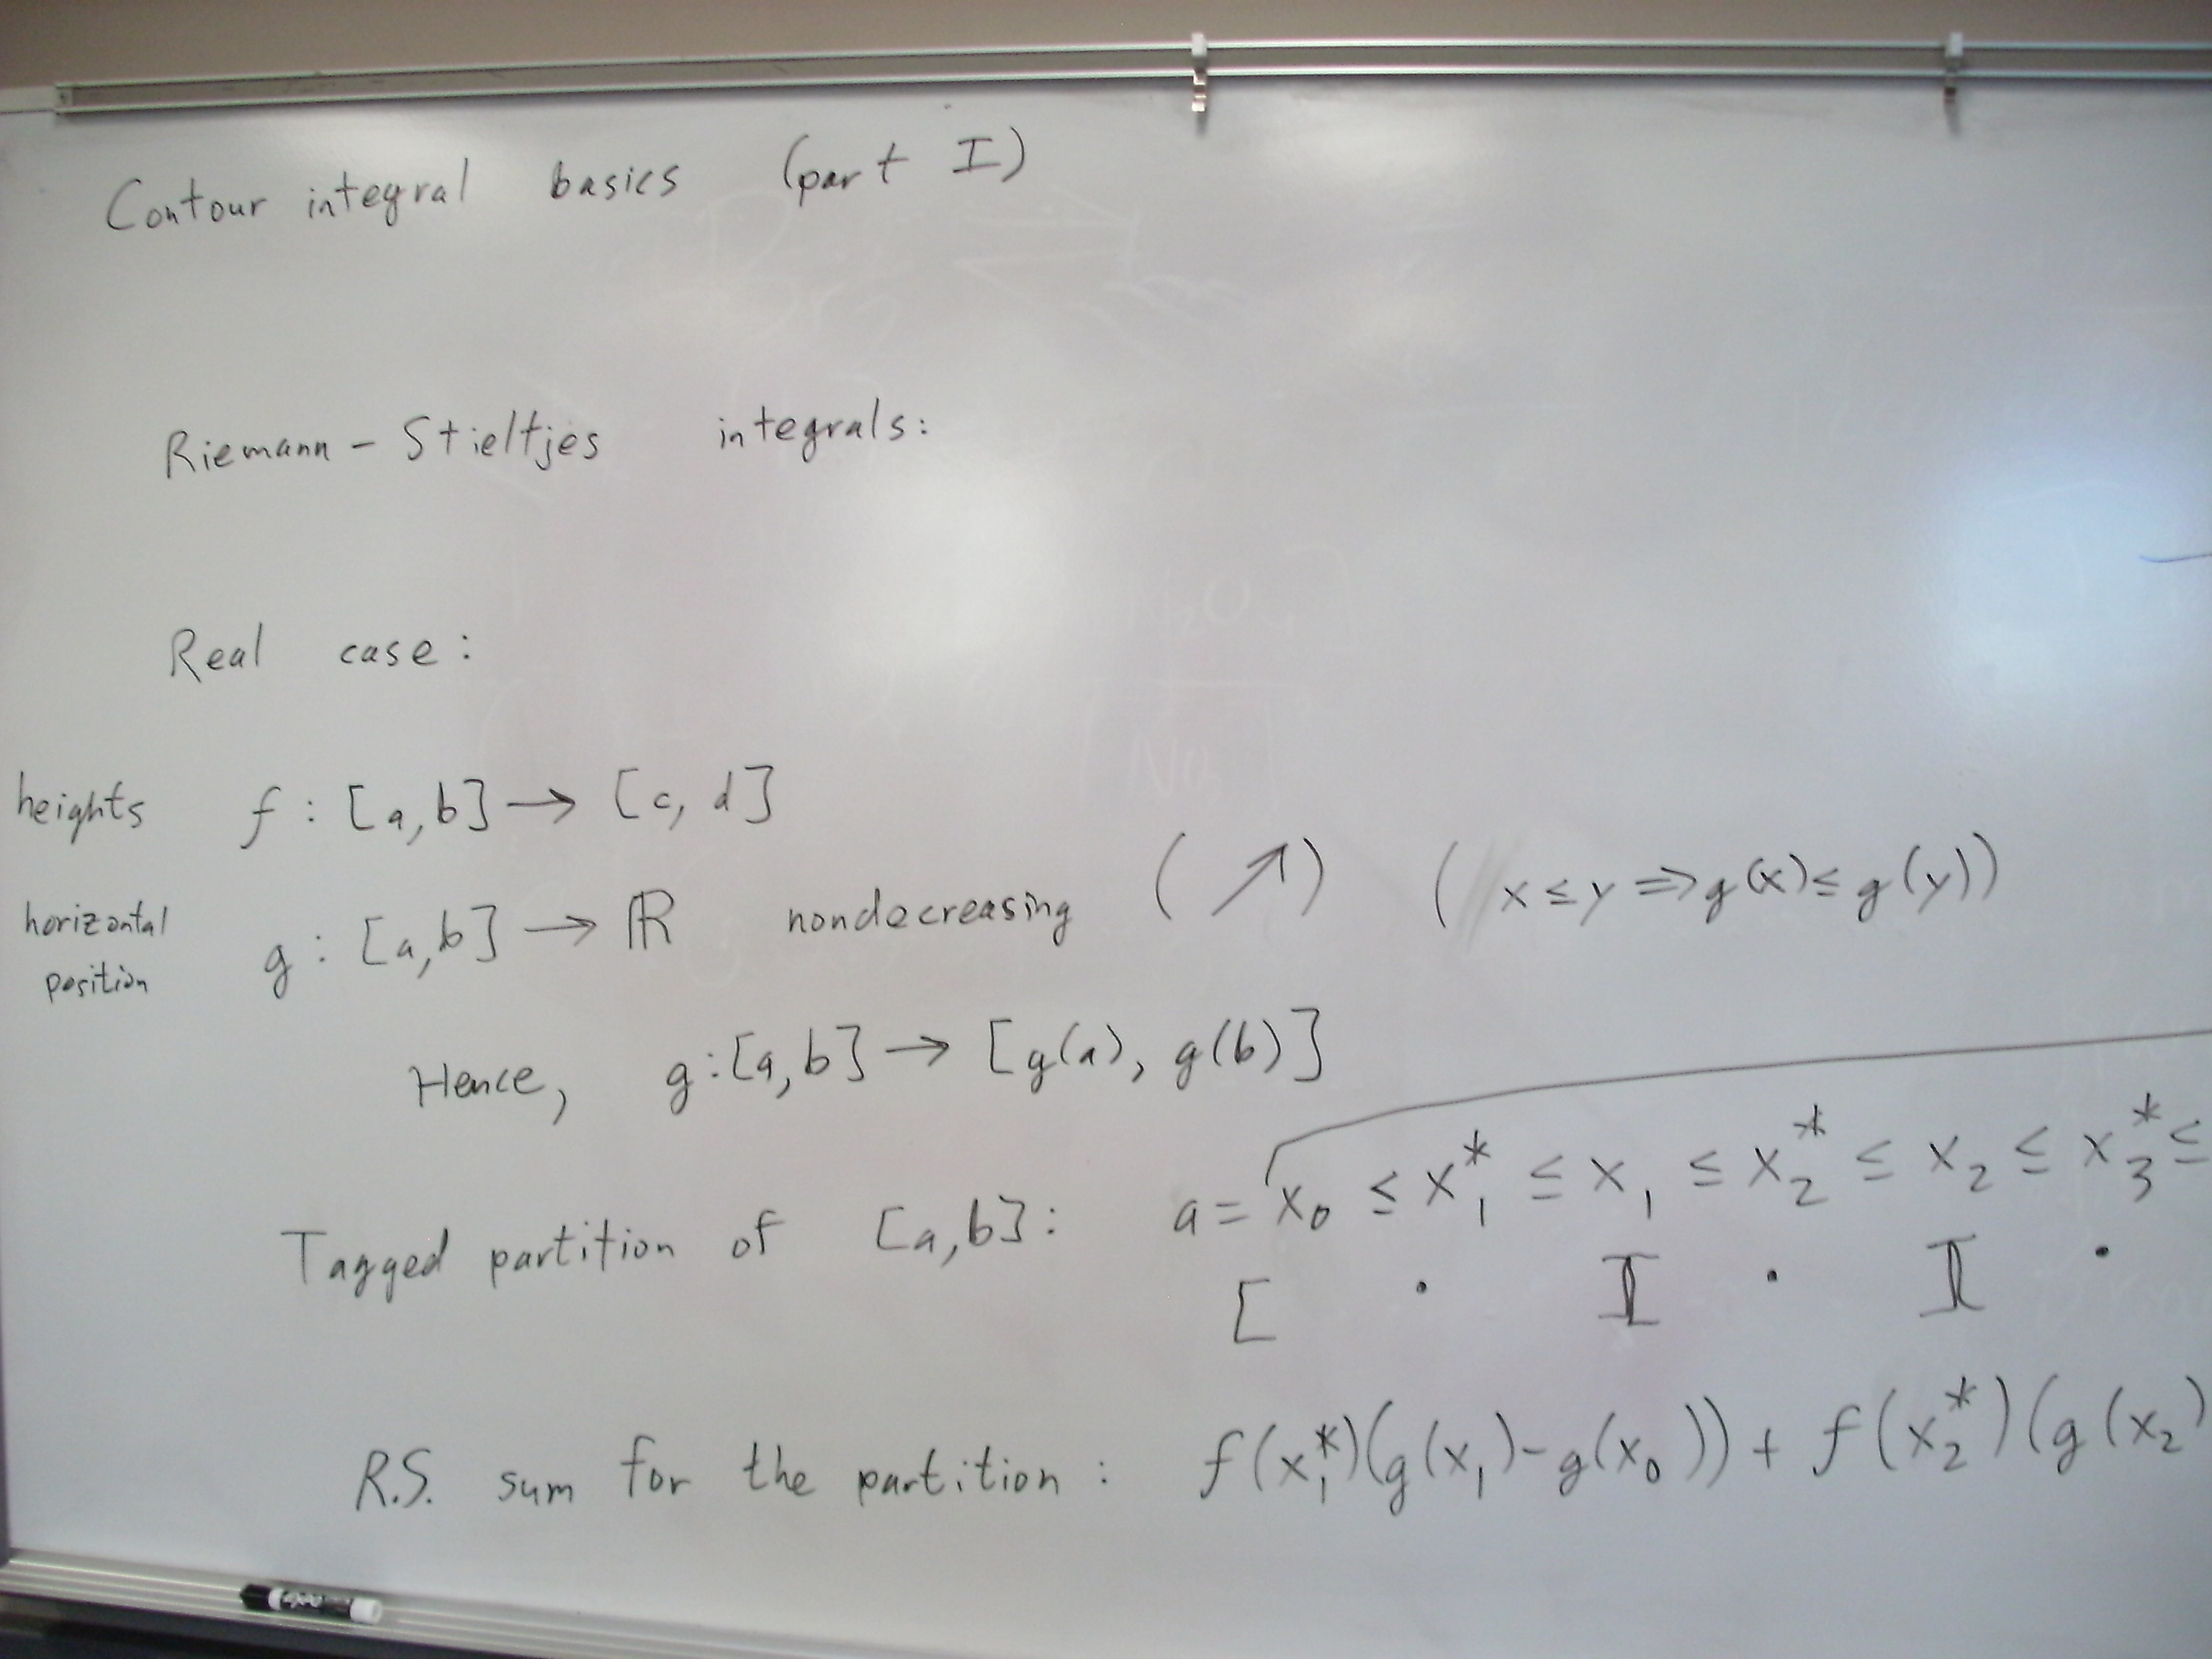 Contour integral basics (part I)
Riemann - Stieltjes integrals:
Real case:
heights f : [a,b] → [c, d]
horizontal position g : [a,b] → ℝ nondecreasing (↗) (x ≤ y ⇒ g(x) ≤ g(y))
Hence, g:[a,b] → [g(a), g(b)]
Tagged partition of [a,b]: a = x₀ ≤ x₁* ≤ x₁ ≤ x₂* ≤ x₂ ≤ x₃* ≤
[ · ][ · ][ ·
R.S. sum for the partition : f(x₁*)(g(x₁)-g(x₀)) + f(x₂*)(g(x₂)